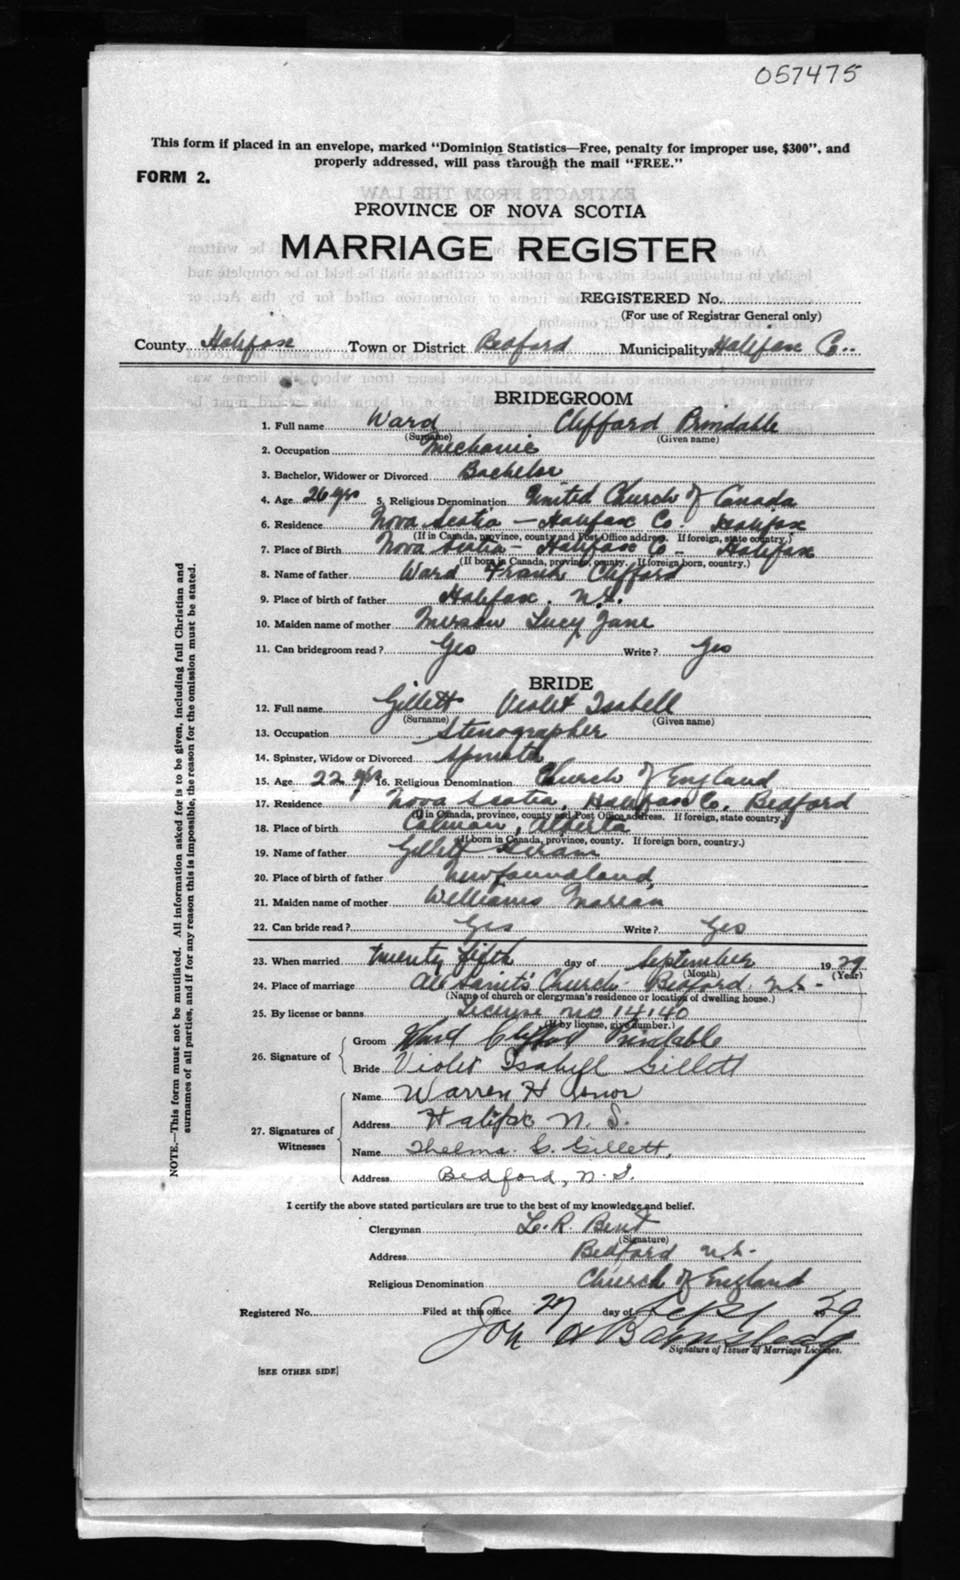 057475
This form if placed in an envelope, marked "Dominion Statistics—Free, penalty for improper use, $300", and
properly addressed, will pass through the mail "FREE."
FORM 2.
PROVINCE OF NOVA SCOTIA
MARRIAGE REGISTER
REGISTERED No.
(For use of Registrar General only)
County Halifax Town or District Bedford Municipality Halifax Co.
BRIDEGROOM
1. Full name Ward Clifford Prindable
(Surname) (Given name)
2. Occupation Mechanic
3. Bachelor, Widower or Divorced Bachelor
4. Age 26 yrs 5. Religious Denomination United Church of Canada
6. Residence Nova Scotia - Halifax Co. Halifax
(If in Canada, province, county and Post Office address. If foreign, state country.)
7. Place of Birth Nova Scotia - Halifax Co - Halifax
(If born in Canada, province, county. If foreign born, country.)
8. Name of father Ward Frank Clifford
9. Place of birth of father Halifax. N.S.
10. Maiden name of mother Lucy Jane
11. Can bridegroom read? Yes Write? Yes
BRIDE
12. Full name Gillett Violet Isabell
(Surname) (Given name)
13. Occupation Stenographer
14. Spinster, Widow or Divorced Spinster
15. Age 22 yrs 16. Religious Denomination Church of England
17. Residence Nova Scotia, Halifax Co. Bedford
(If in Canada, province, county and Post Office address. If foreign, state country.)
18. Place of birth Alberta
(If born in Canada, province, county. If foreign born, country.)
19. Name of father Gillett Hiram
20. Place of birth of father Newfoundland,
21. Maiden name of mother Williams Marian
22. Can bride read? Yes Write? Yes
23. When married twenty fifth day of September 1929
(Month) (Year)
24. Place of marriage All Saint's Church - Bedford N.S.-
(Name of church or clergyman's residence or location of dwelling house.)
25. By license or banns License no 14140
(If by license, give number.)
26. Signature of Groom Ward Clifford Prindable
Bride Violet Isabell Gillett
27. Signatures of Witnesses
Name Warren H
Address Halifax N. S.
Name Thelma. G. Gillett,
Address Bedford, N.S.
I certify the above stated particulars are true to the best of my knowledge and belief.
Clergyman L. R. Bent
(Signature)
Address Bedford N.S.
Religious Denomination Church of England
Registered No. Filed at this office 27 day of Sept 1929
Signature of Issuer of Marriage Licenses.
[SEE OTHER SIDE]
NOTE.—This form must not be mutilated. All information asked for is to be given, including full Christian and
surnames of all parties, and if for any reason this is impossible, the reason for the omission must be stated.